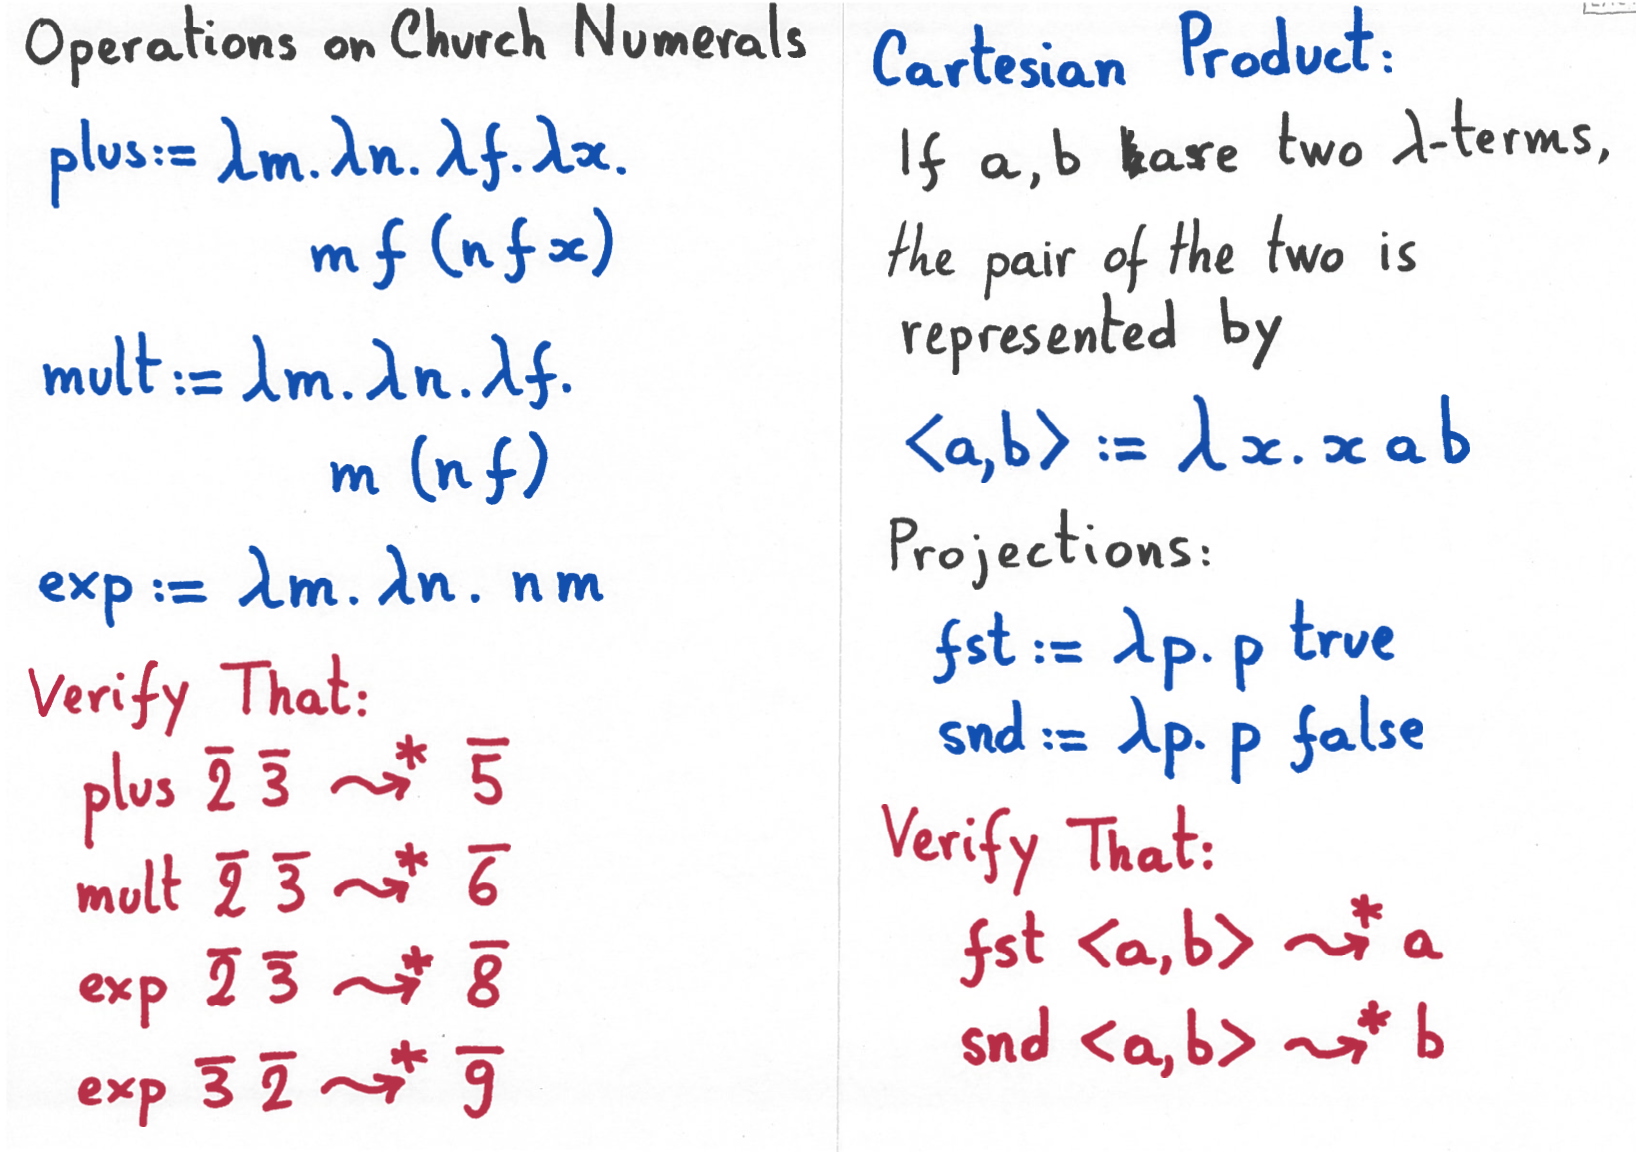 Operations on Church Numerals
plus:= λm. λn. λf. λx.
m f (n f x)
mult := λm. λn. λf.
m (n f)
exp := λm. λn. n m
Verify That:
plus 2̅ 3̅ ⤳* 5̅
mult 2̅ 3̅ ⤳* 6̅
exp 2̅ 3̅ ⤳* 8̅
exp 3̅ 2̅ ⤳* 9̅
Cartesian Product:
If a, b are two λ-terms,
the pair of the two is
represented by
<a,b> := λ x. x a b
Projections:
fst := λp. p true
snd := λp. p false
Verify That:
fst <a,b> ⤳* a
snd <a,b> ⤳* b